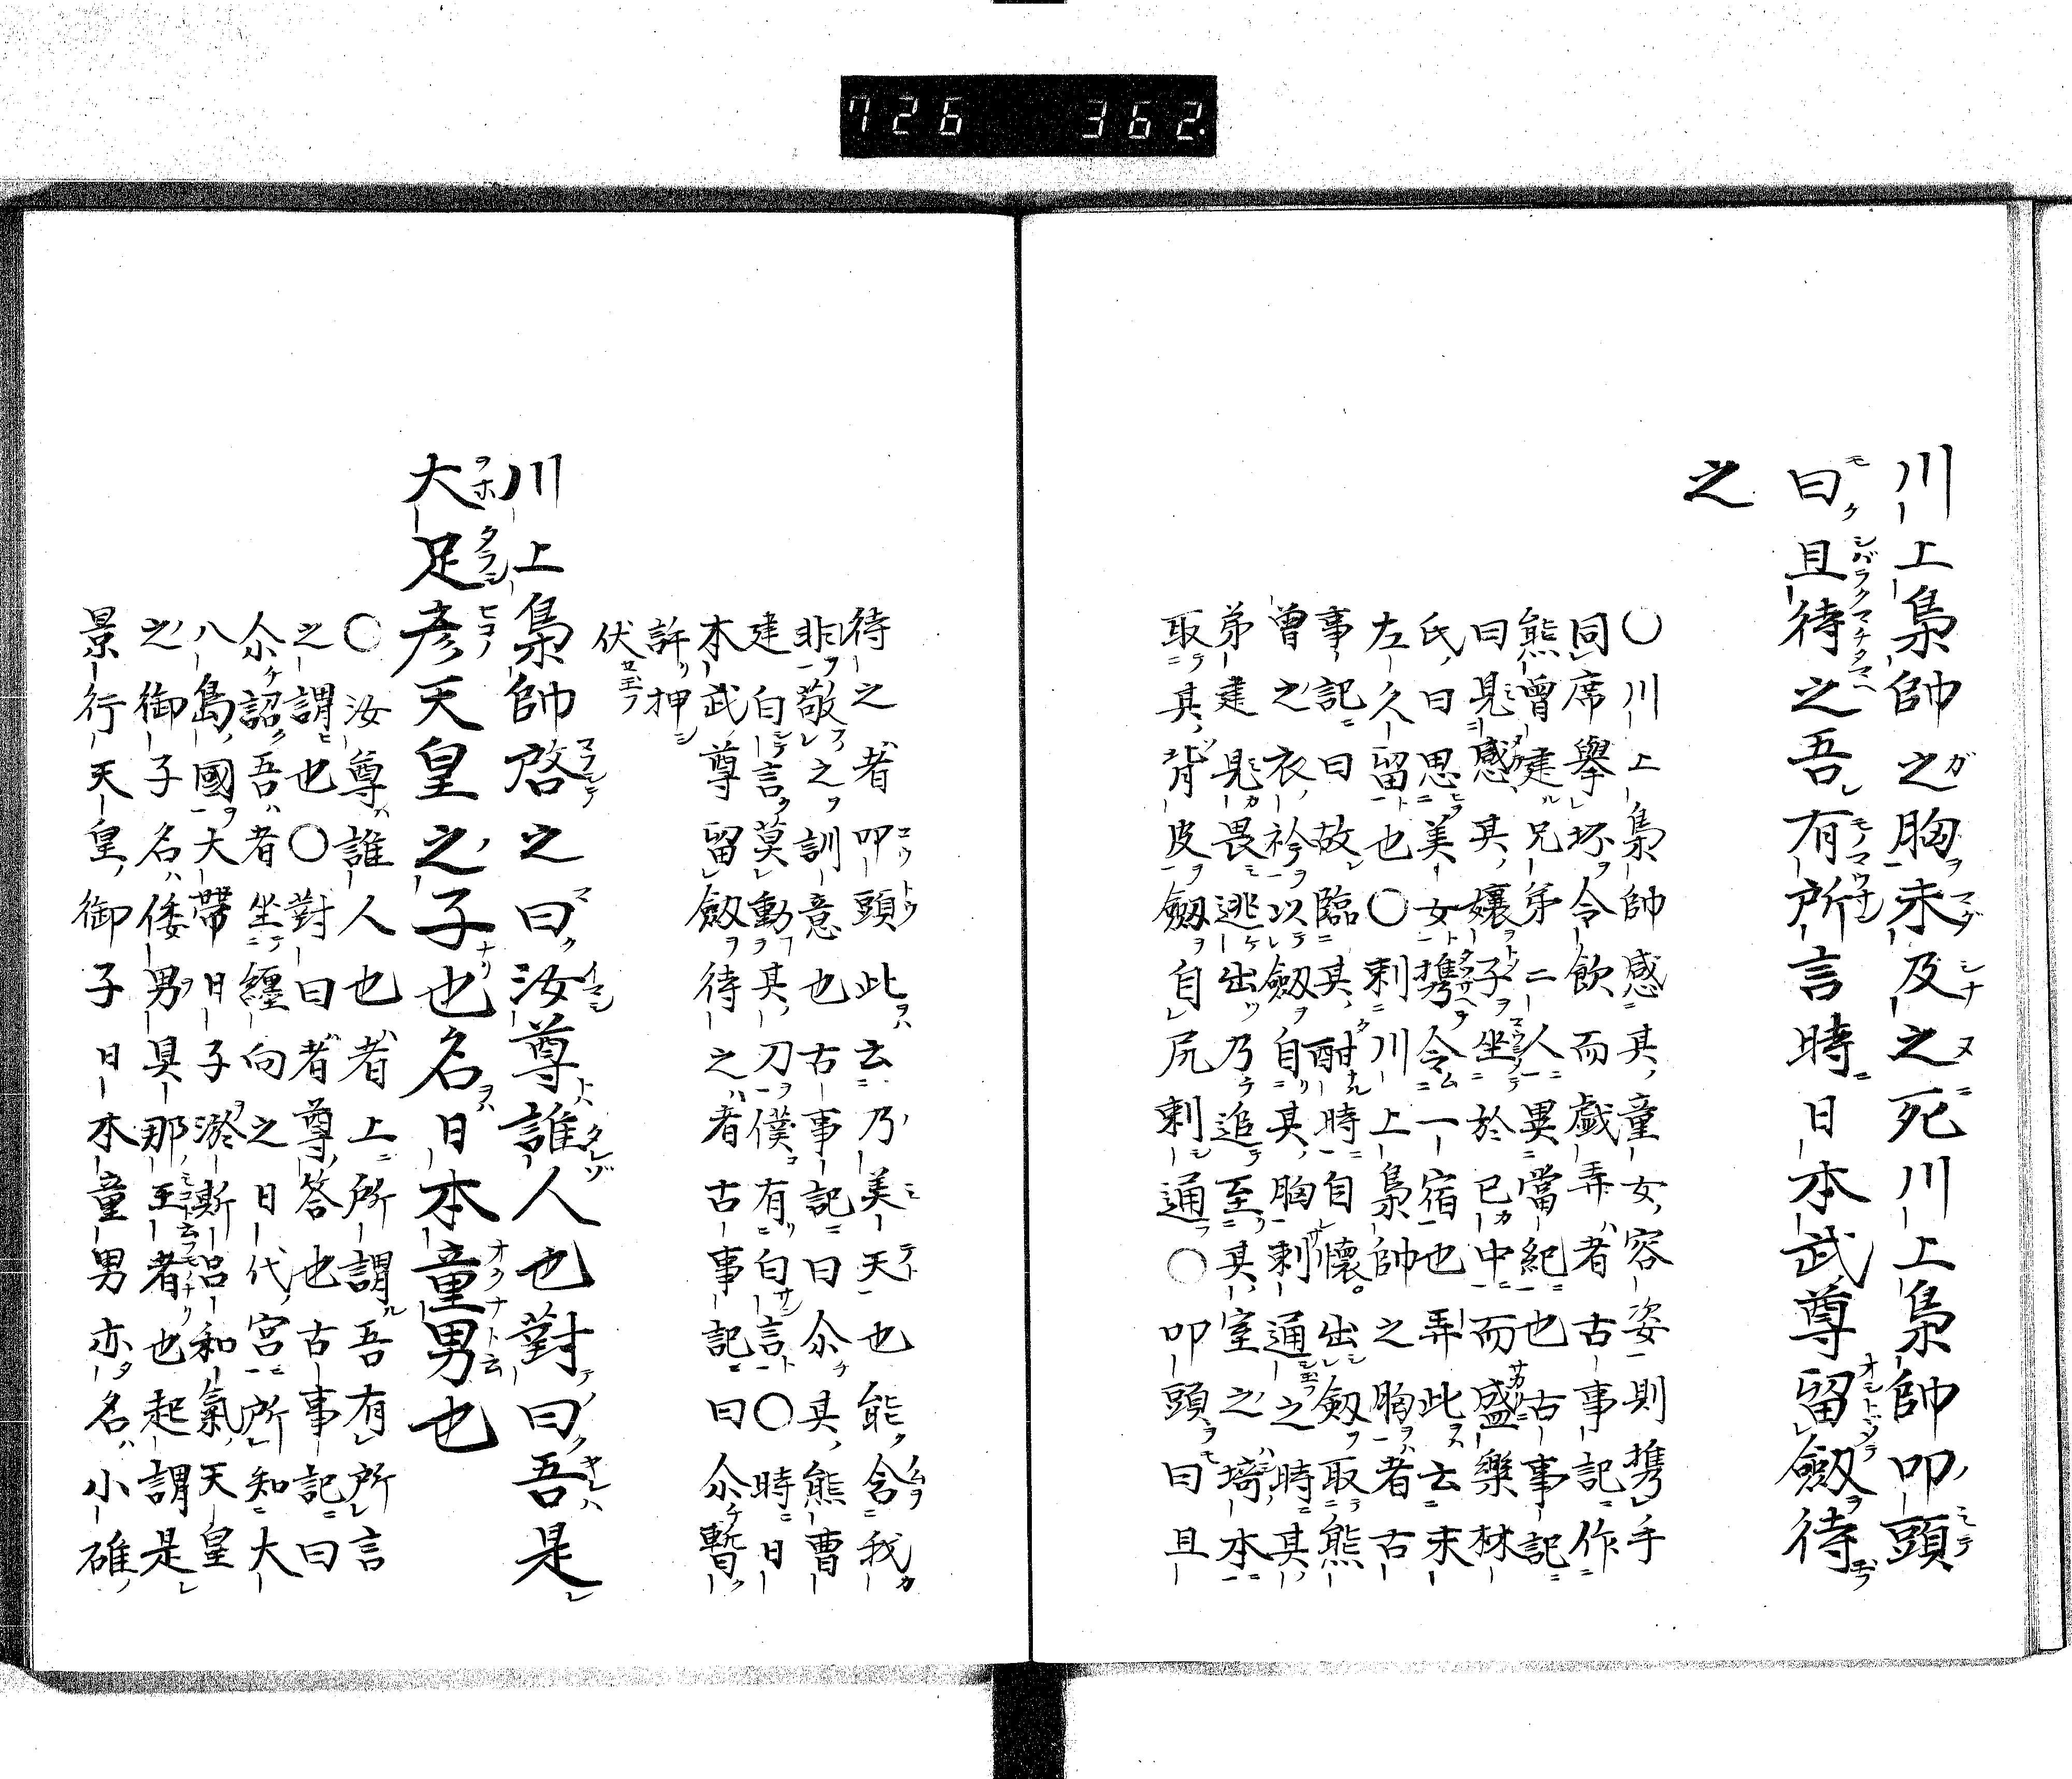 726 362.
川上梟帥之胸未及之死川上梟帥叩頭
曰且待之吾有所言時日本武尊留劔待
之
〇川上梟帥感其童女容姿則携手
同席擧坏令飲而戯弄者古事記作
熊曾建兄弟二人異當紀也古事記
曰見感其孃子坐於已中而盛樂林
氏曰思美女携令一宿也弄此云末
左久留也〇刺川上梟帥之胸者古
事記曰故臨其酣時自懷出劔取熊
曾之衣衿以劔自其胸刺通之時其
弟建見畏逃出乃追至其室之埼本
取其背皮劔自尻刺通〇叩頭曰且
待之者叩頭此云乃美天也能含我
非敬之訓意也古事記曰尒其熊曹
建白言莫動其刀僕有白言〇時日
本武尊留劔待之者古事記曰尒暫
許押
伏
川上梟帥啓之曰汝尊誰人也對曰吾是
大足彦天皇之子也名日本童男也
〇汝尊誰人也者上所謂吾有所言
之謂也〇對曰者尊答也古事記曰
尒詔吾者坐纒向之日代宮所知大
八島國大帶日子淤斯呂和氣天皇
之御子名倭男具那王者也起謂是
景行天皇御子日本童男亦名小碓